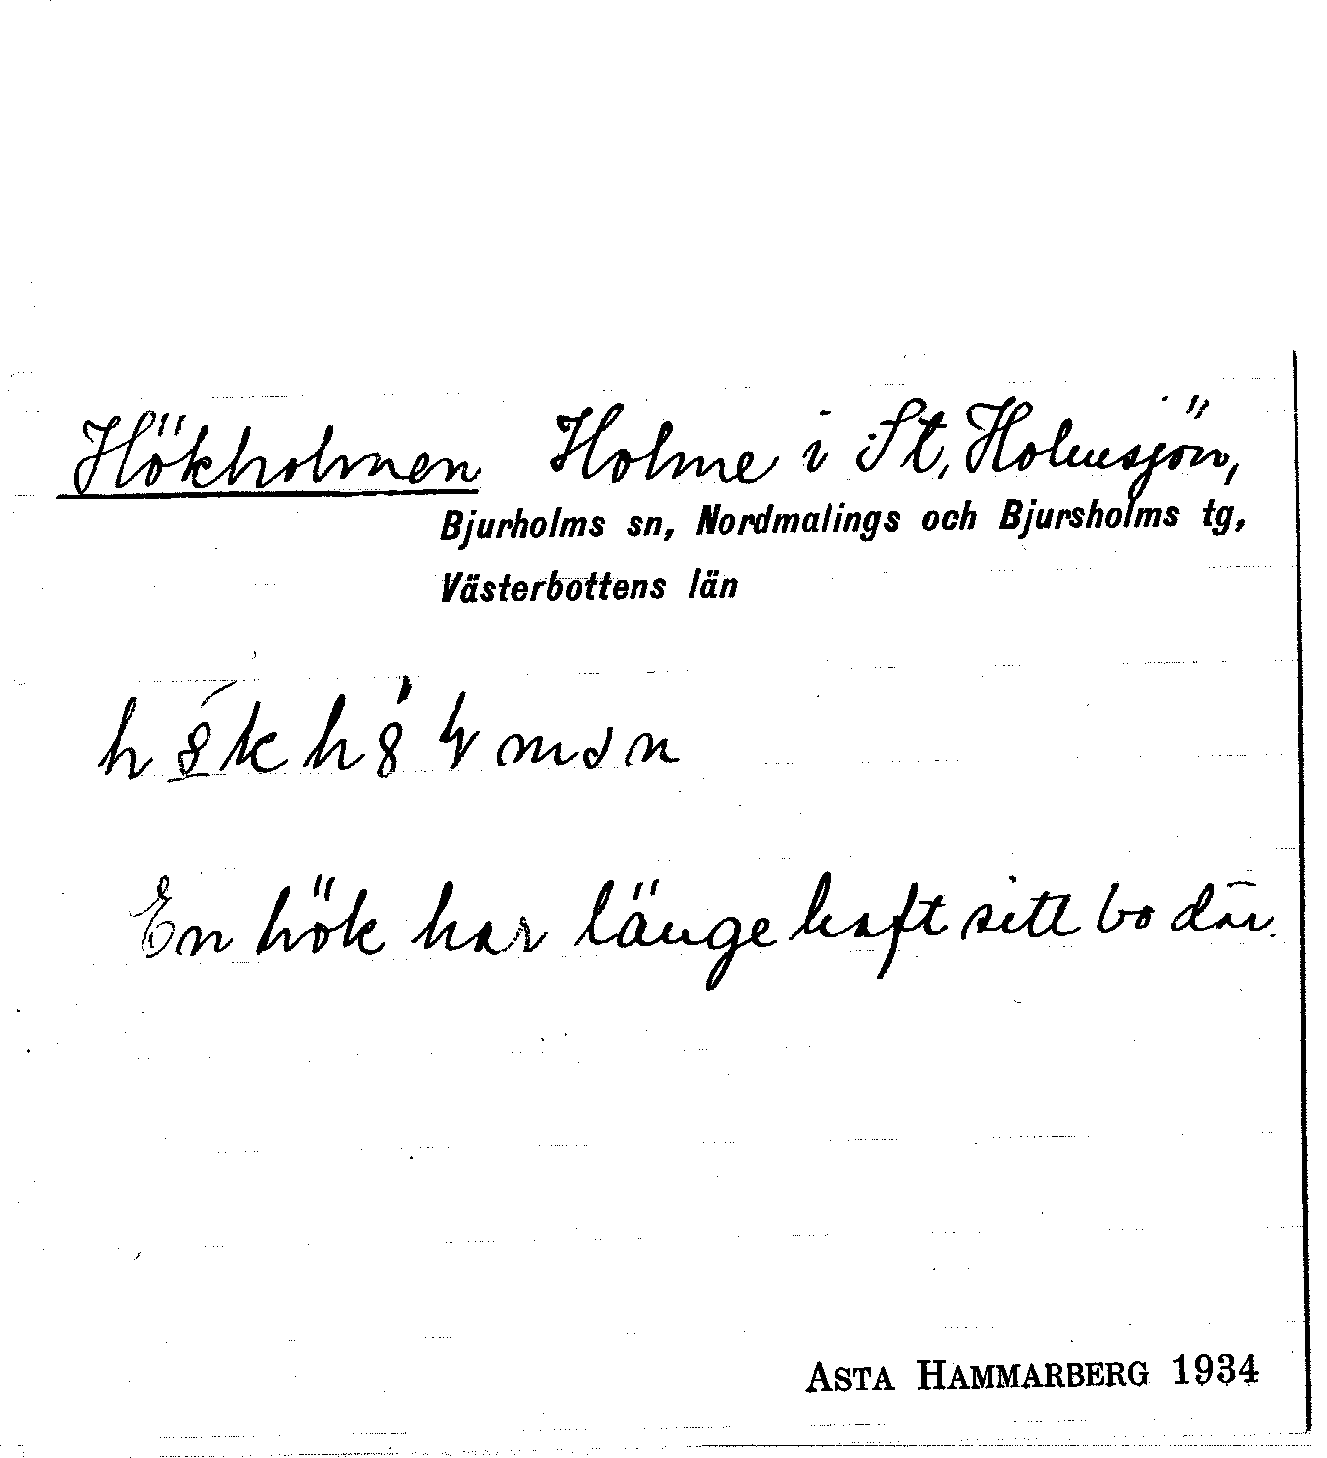 Hökholmen Holme i St. Holmsjön,
Bjurholms sn, Nordmalings och Bjursholms tg,
Västerbottens län
En hök har länge haft sitt bo där.
ASTA HAMMARBERG 1934